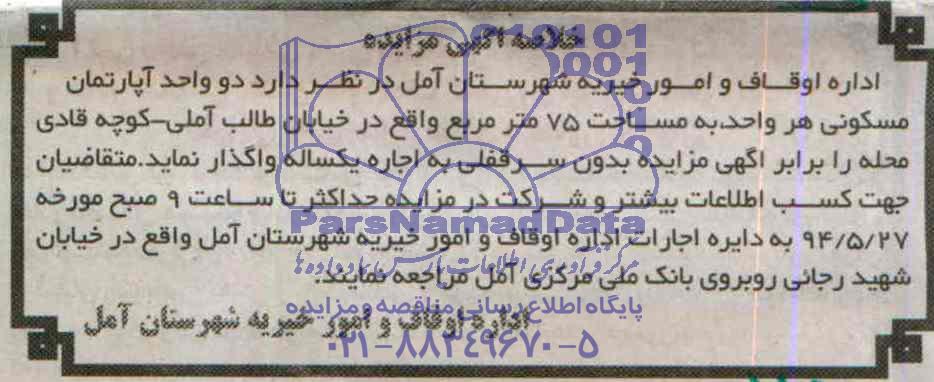 خلاصه آگهی مزایده
اداره اوقاف و امور خیریه شهرستان آمل در نظر دارد دو واحد آپارتمان
مسکونی هر واحد،به مساحت ۷۵ متر مربع واقع در خیابان طالب آملی-کوچه قادی
محله را برابر اگهی مزایده بدون سرقفلی به اجاره یکساله واگذار نماید.متقاضیان
جهت کسب اطلاعات بیشتر و شرکت در مزایده حداکثر تا ساعت ۹ صبح مورخه
۹۴/۵/۲۷ به دایره اجارات اداره اوقاف و امور خیریه شهرستان آمل واقع در خیابان
شهید رجائی روبروی بانک ملی مرکزی آمل مراجعه نمایند.
اداره اوقاف و امور خیریه شهرستان آمل
ParsNamadData
مرکز فرآوری اطلاعات پارس نماد داده ها
پایگاه اطلاع رسانی مناقصه و مزایده
۰۲۱-۸۸۳۴۹۶۷۰-۵